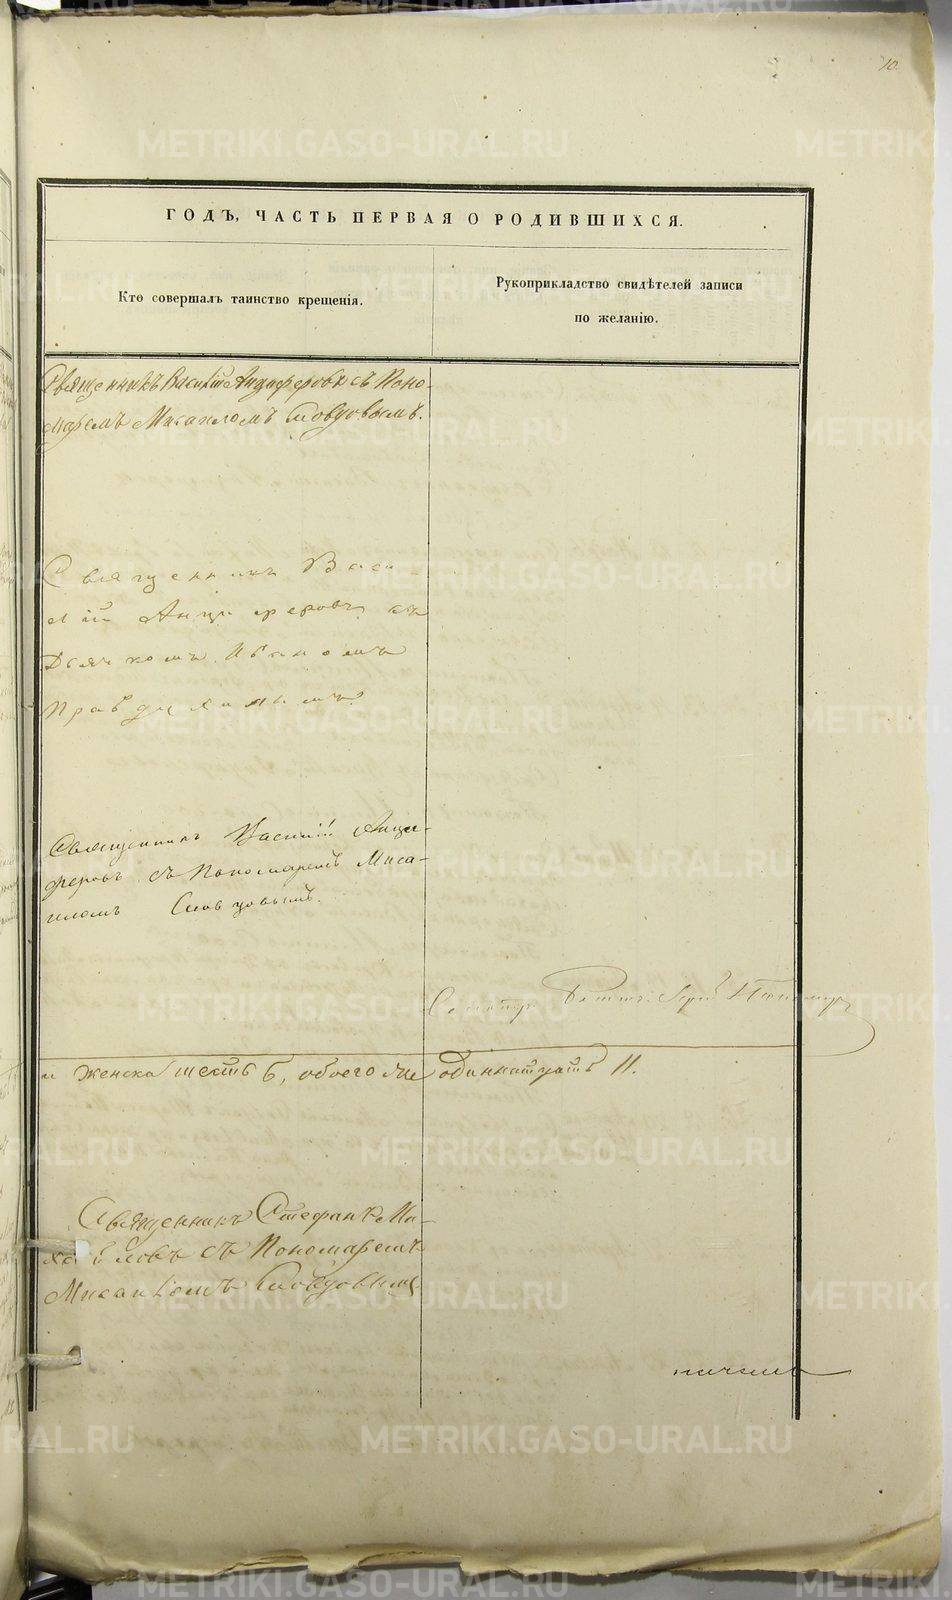 10.
ГОДЪ, ЧАСТЬ ПЕРВАЯ О РОДИВШИХСЯ.
Кто совершалъ таинство крещенія.
Рукоприкладство свидѣтелей записи
по желанію.
Священникъ Василій Анциферовъ съ Поно-
маремъ Мисаиломъ Словцовымъ.
Священникъ Васи
лій Анциферовъ съ
Дьячкомъ Иваномъ
Правдухинымъ
Священникъ Василій Анци-
феровъ съ Пономаремъ Миса-
иломъ Словцовымъ.
и женска шесть 6, обоего одиннатцать 11.
Священникъ Стефанъ Ми-
хайловъ съ Пономаремъ
Мисаиломъ Словцовымъ
METRIKI.GASO-URAL.RU